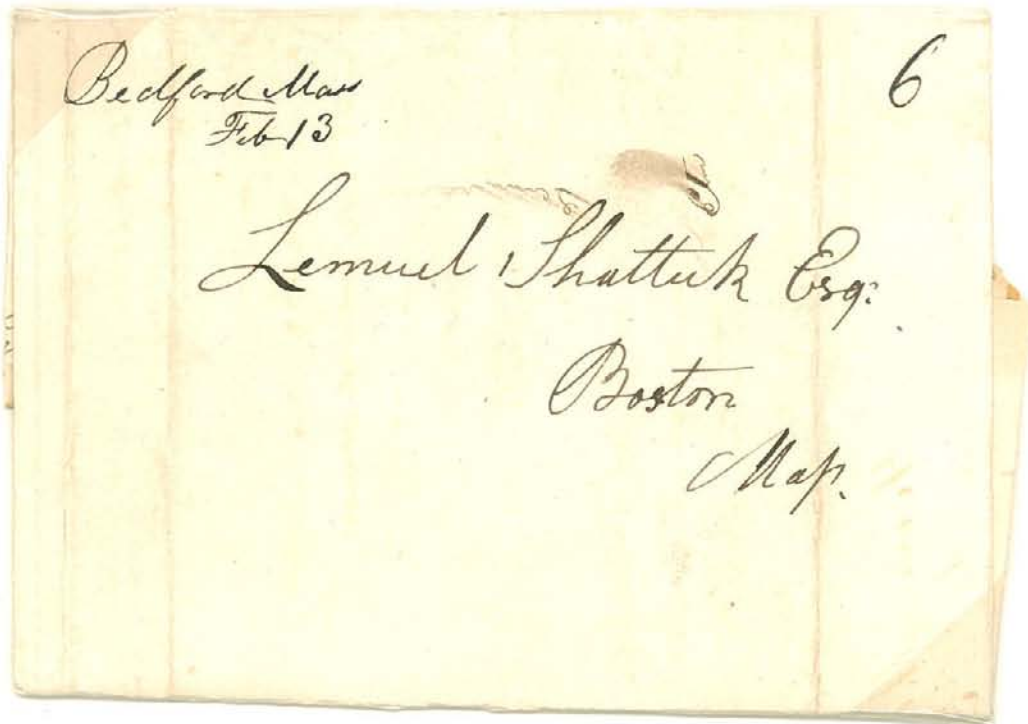 Bedford Mass
Feb 13
6
Lemuel Shattuck Esq.
Boston
Mass.